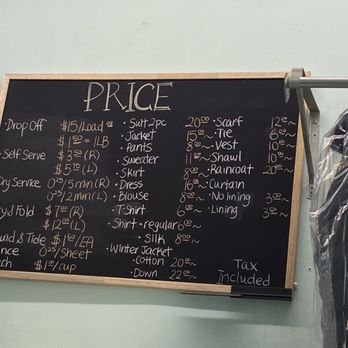 PRICE
· Drop Off $15/Load
$1⁵⁰ = 1LB
Self Serve $3⁷⁵ (R)
$5⁷⁵ (L)
Dry Service 0²⁵/5min (R)
0²⁵/2min (L)
& Fold $7⁰⁰ (R)
$12⁰⁰ (L)
& Tide $1⁵⁰/EA
/Sheet
$1/cup
· Suit 2pc 20⁰⁰~
· Jacket 15⁰⁰~
Pants 8⁰⁰~
Sweater 11⁰⁰~
Skirt 8⁰⁰~
· Dress 16⁰⁰~
· Blouse 8⁰⁰~
· T-Shirt 6⁰⁰~
Shirt · regular 6⁰⁰~
· Silk 8⁰⁰~
Winter Jacket
· Cotton 20⁰⁰~
· Down 22⁰⁰~
· Scarf 12⁰⁰~
· Tie 6⁰⁰~
· Vest 10⁰⁰~
· Shawl 10⁰⁰~
Raincoat 20⁰⁰~
· Curtain
· No lining 3⁰⁰~
· Lining 3⁵⁰~
Tax
Included